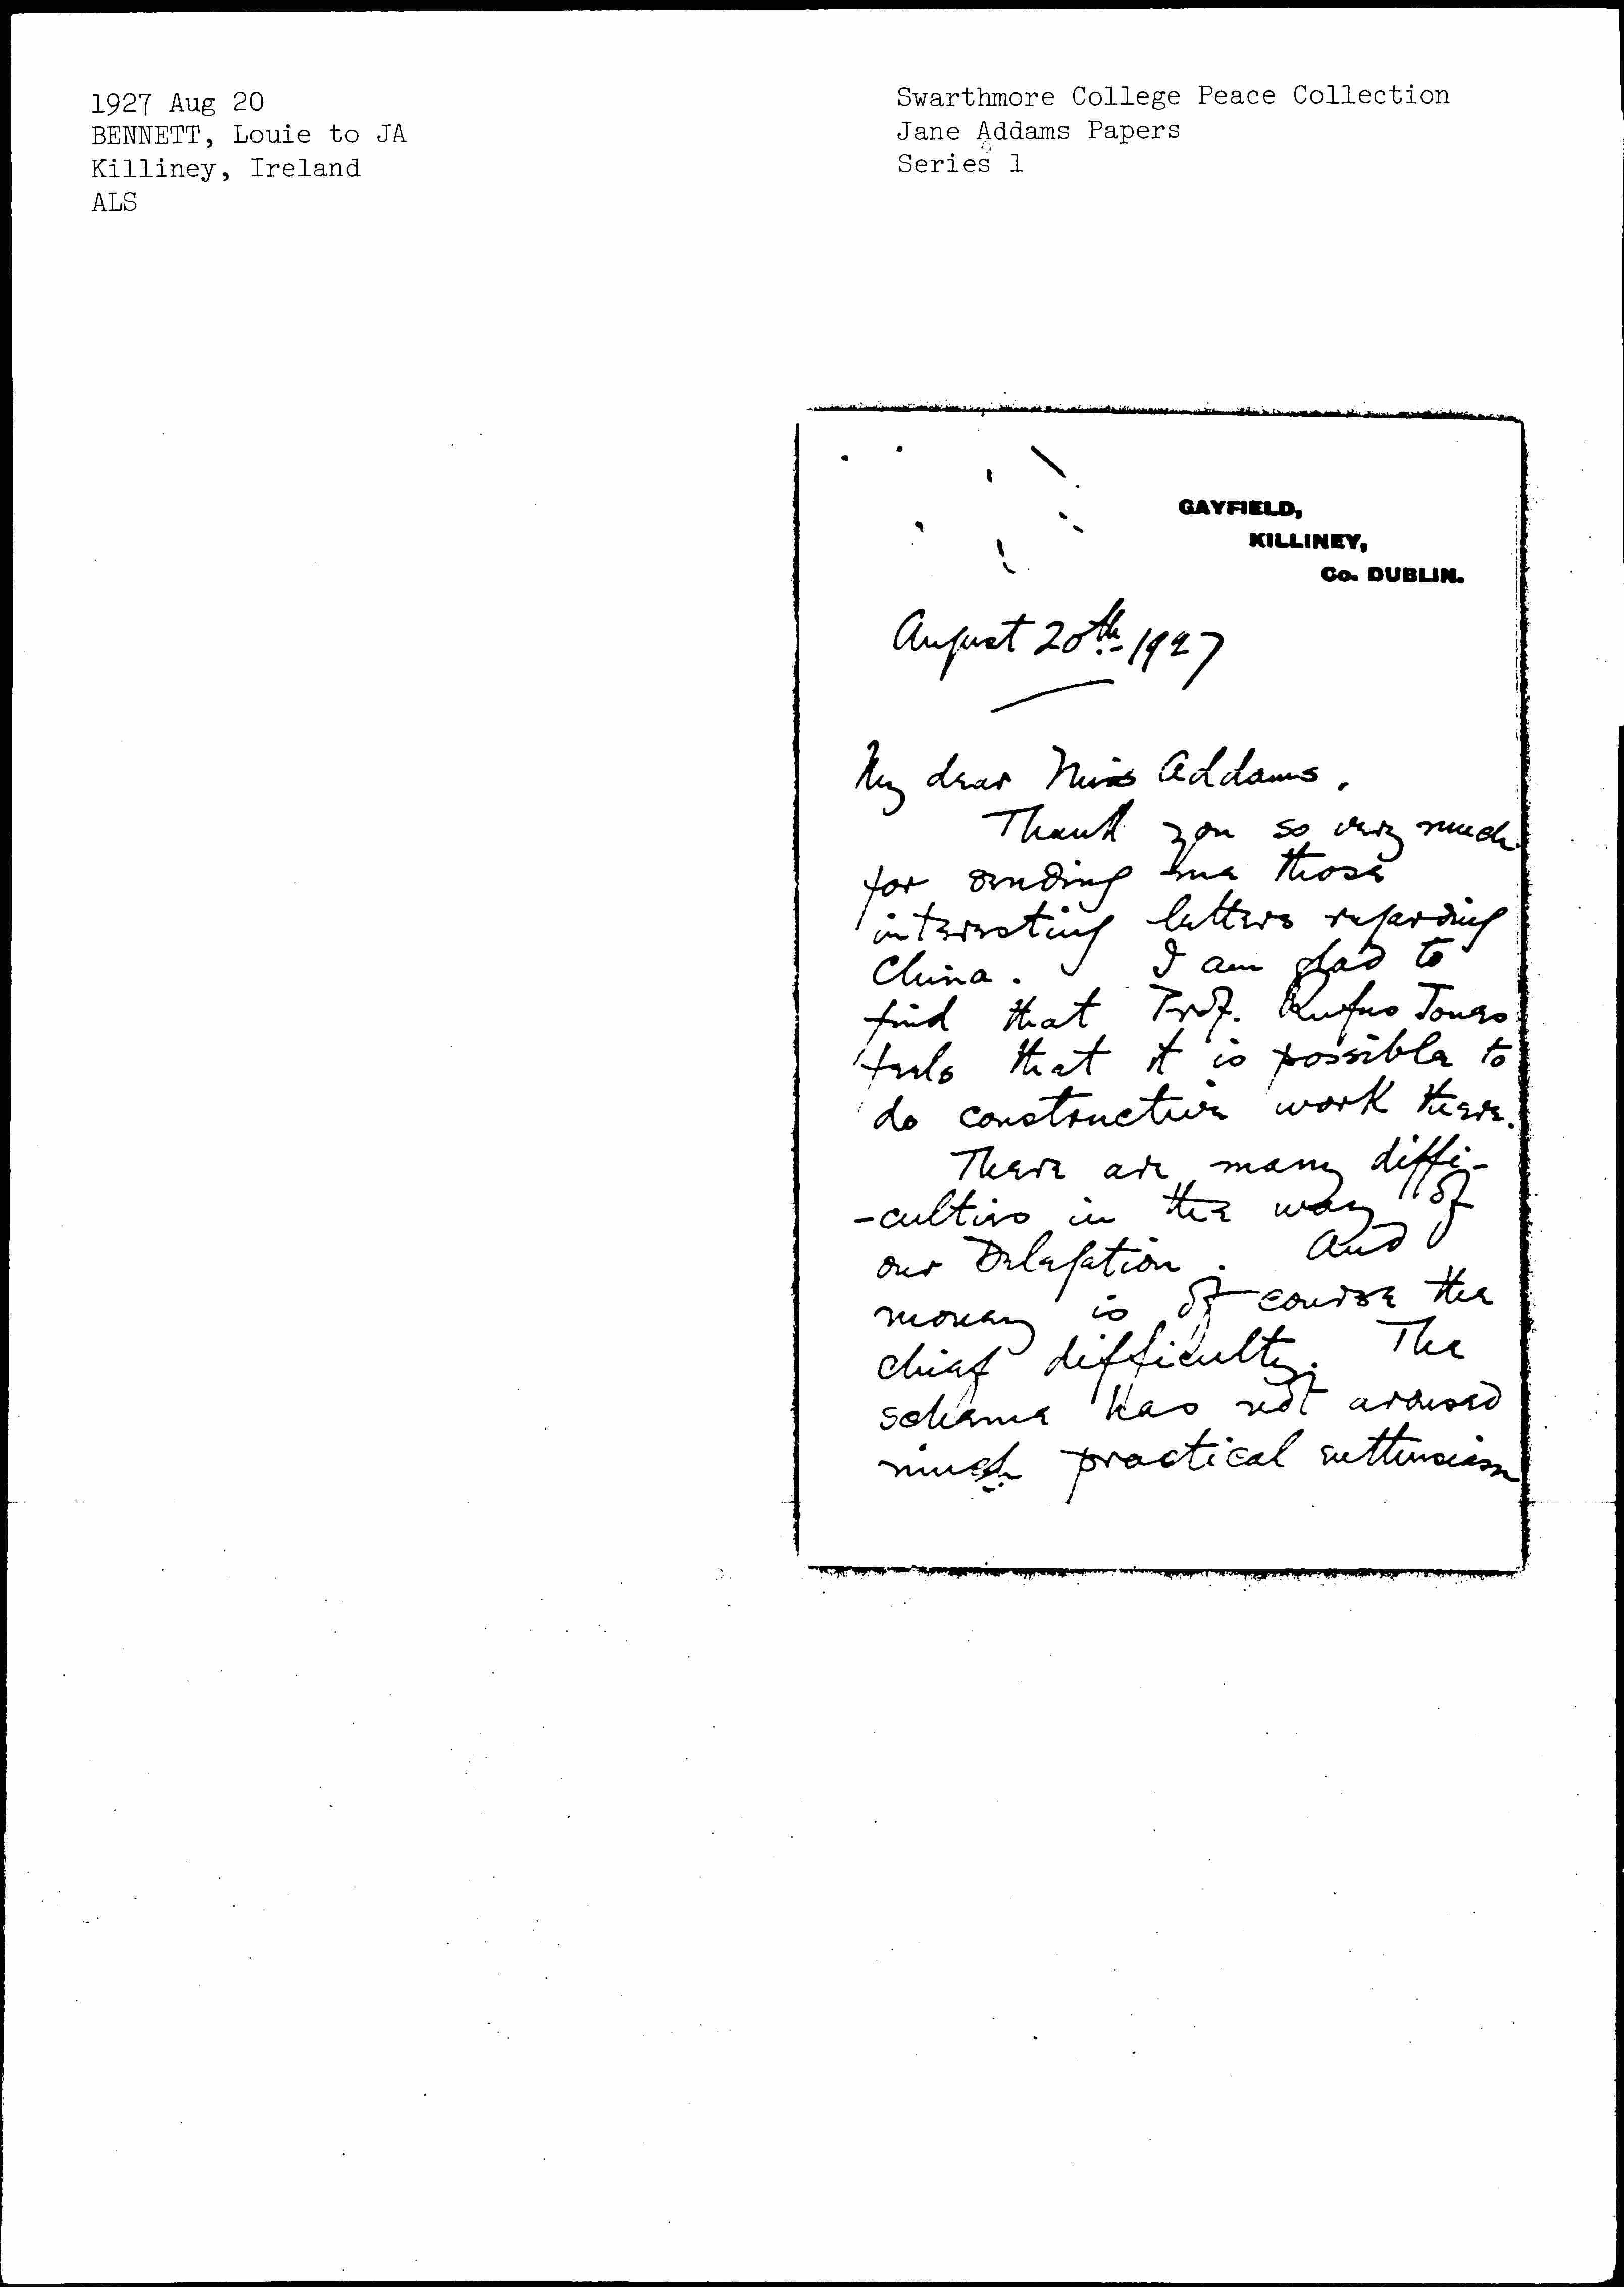 1927 Aug 20
BENNETT, Louie to JA
Killiney, Ireland
ALS
Swarthmore College Peace Collection
Jane Addams Papers
Series 1
GAYFIELD,
KILLINEY,
Co. DUBLIN.
August 20th 1927
My dear Miss Addams.
Thank you so very much
for sending me those
interesting letters regarding
China. I am glad to
find that Prof. Rufus Jones
feels that it is possible to
do constructive work there.
There are many diffi-
-culties in the way of
our Delegation. And
money is of course the
chief difficulty. The
scheme has not aroused
much practical enthusiasm